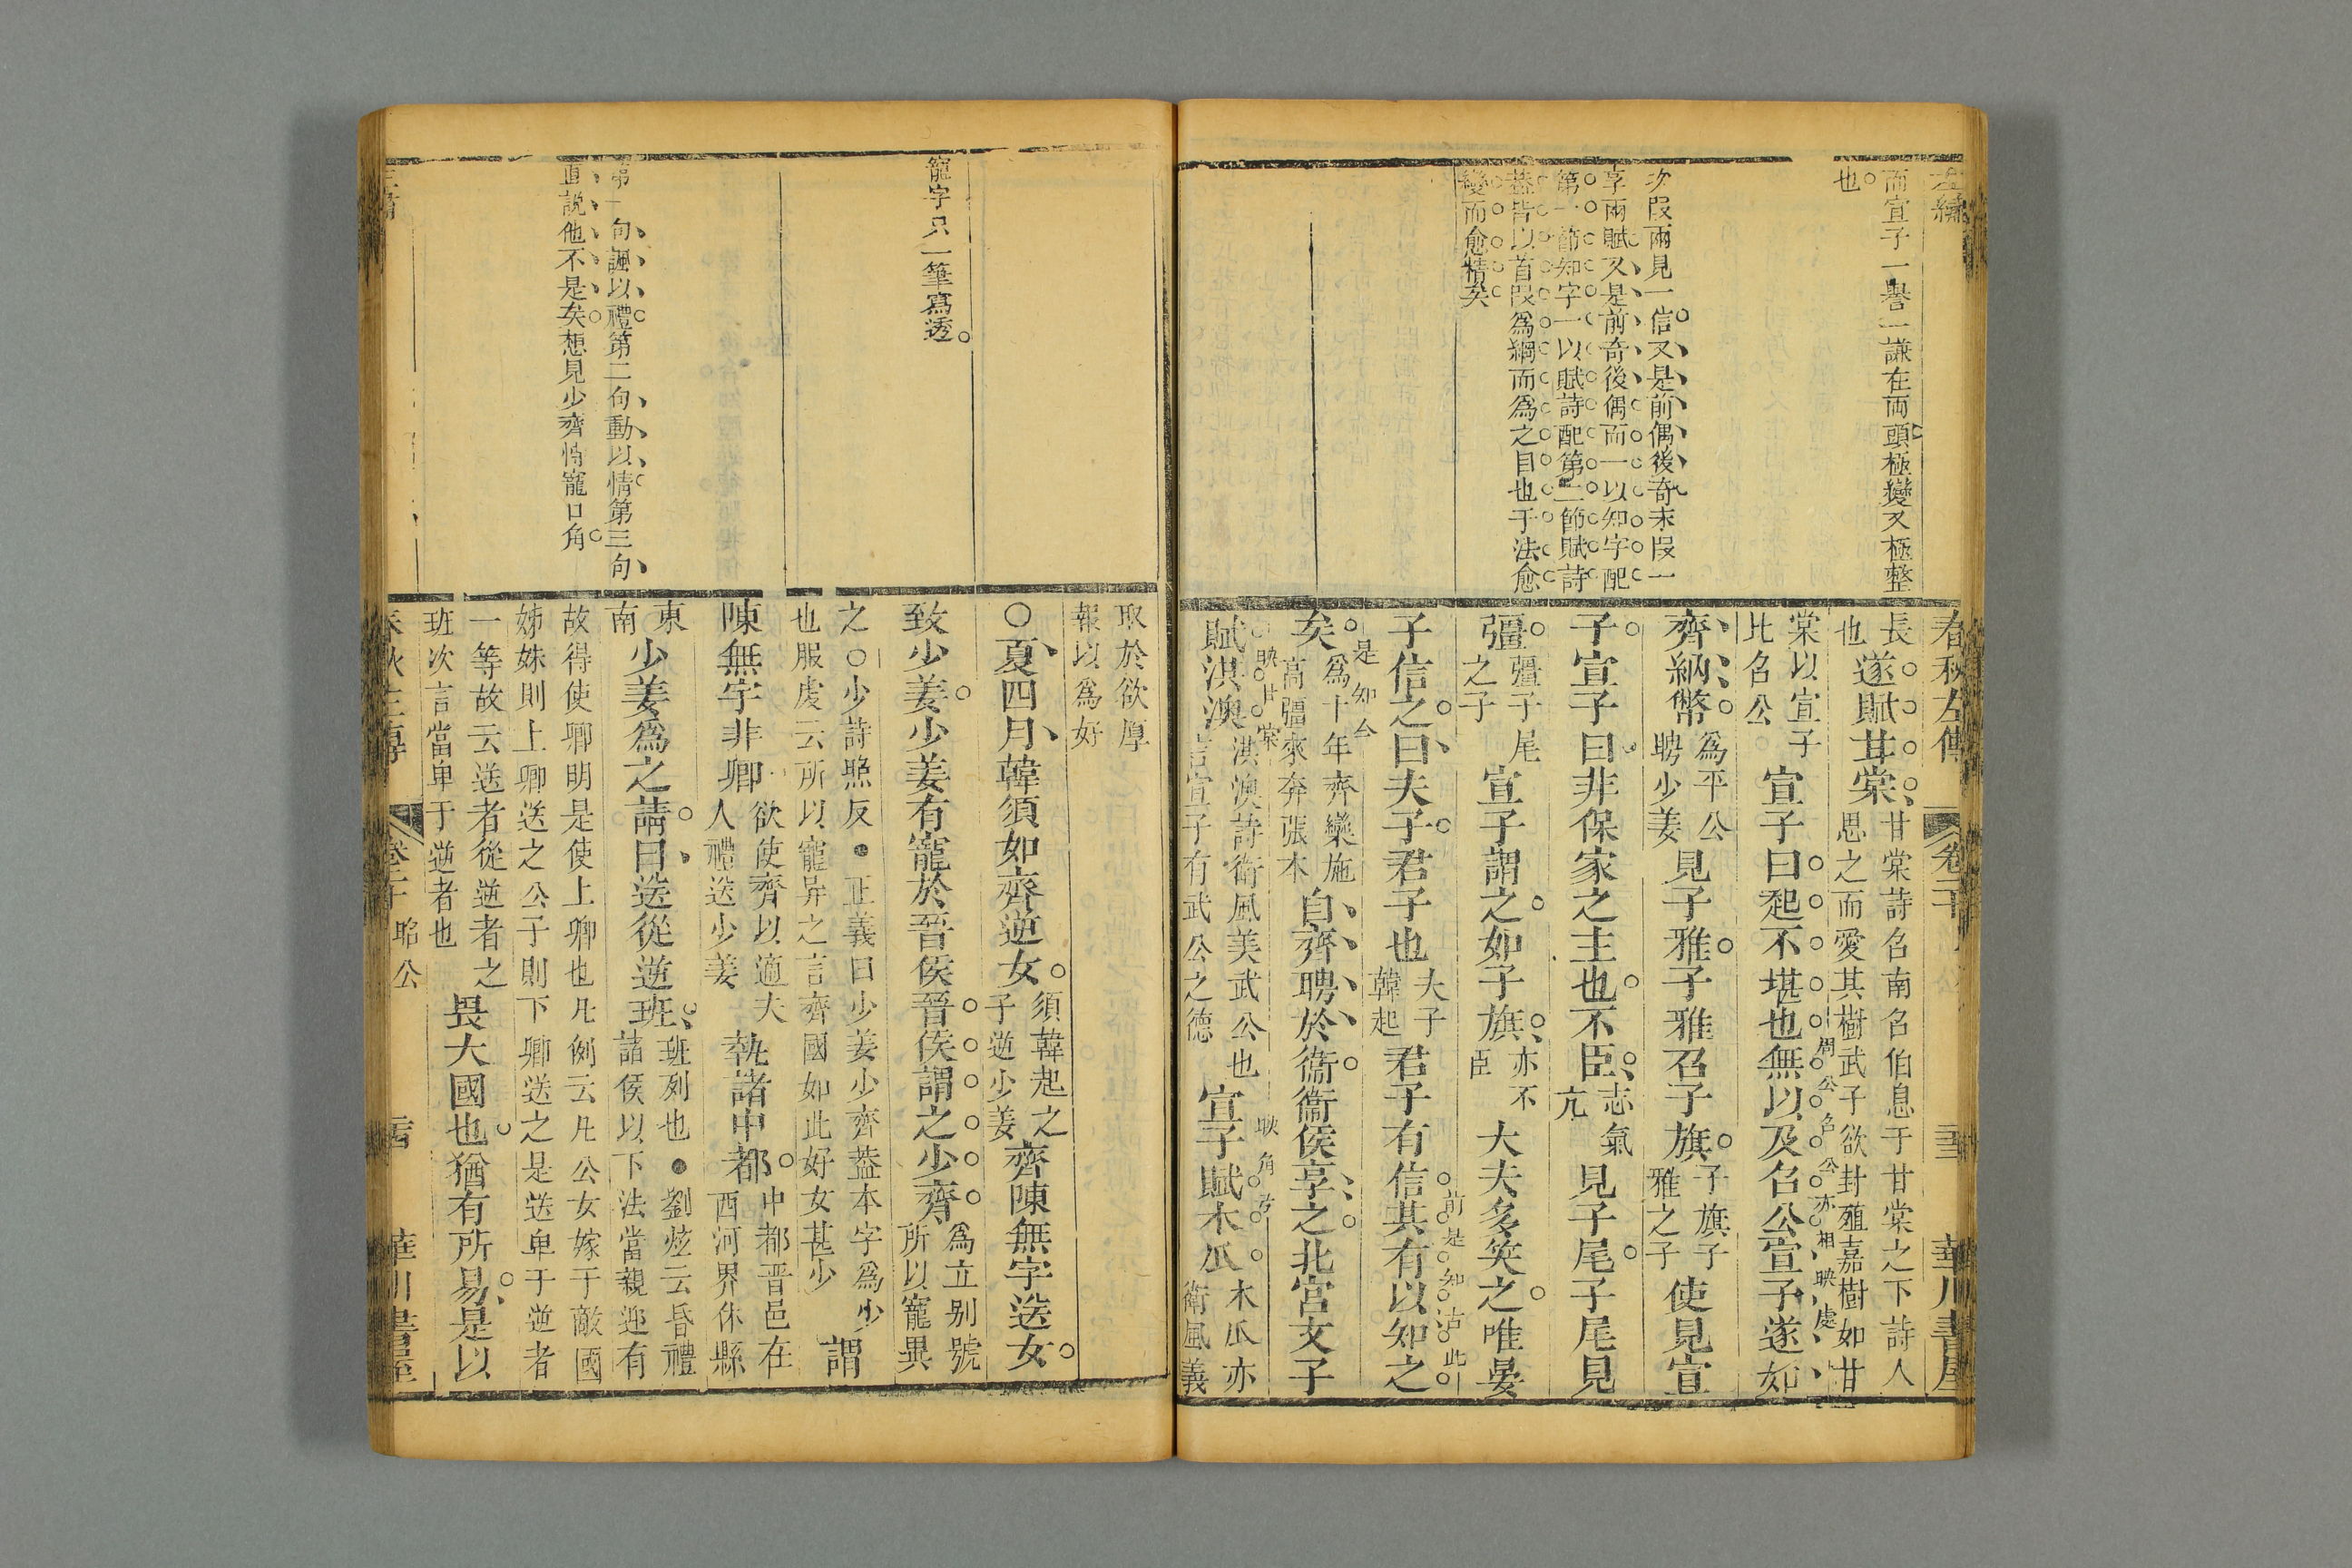 左繡
而宣子一譽一謙在兩頭極變又極整
也
次段兩見一信又是前偶後奇末段一
享兩賦又是前奇後偶而一以知字配
第一節知字一以賦詩配第二節賦詩
葢皆以首段爲綱而爲之目也于法愈
變而愈精矣
春秋左傳 卷二十 華川書屋
長
也
遂賦甘棠
甘棠詩召南召伯息于甘棠之下詩人
思之而愛其樹武子欲封殖嘉樹如甘
棠以宣子
比召公
宣子曰起不堪也無以及召公宣子遂如
周公召公亦相映處
齊納幣
爲平公
聘少姜
見子雅子雅召子旗
子旗子
雅之子
使見宣
子宣子曰非保家之主也不臣
志氣
亢
見子尾子尾見
彊
彊子尾
之子
宣子謂之如子旗
亦不
臣
大夫多笑之唯晏
子信之曰夫子君子也
夫子
韓起
君子有信其有以知之
前是知古此
是知今
矣
爲十年齊欒施
高彊來奔張本
自齊聘於衞衞侯享之北宮文子
映甘棠
賦淇澳
淇澳詩衞風美武公也
言宣子有武公之德
宣子賦木瓜
映角弓
木瓜亦
衛風義
取於欲厚
報以爲好
寵字只一筆寫透
○夏四月韓須如齊逆女
須韓起之
子逆少姜
齊陳無宇送女
致少姜少姜有寵於晉侯晉侯謂之少齊
爲立别號
所以寵異
之○少詩照反●正義曰少姜少齊葢本字爲少
也服虔云所以寵异之言齊國如此好女甚少
謂
陳無宇非卿
欲使齊以適夫
人禮送少姜
執諸中都
中都晋邑在
西河界休縣
東
南
少姜爲之請曰送從逆班
班列也●劉炫云昏禮
諸侯以下法當親迎有
故得使卿明是使上卿也凡例云凡公女嫁于敵國
姊妹則上卿送之公子則下卿送之是送卑于逆者
一等故云送者從逆者之
班次言當卑于逆者也
畏大國也猶有所易是以
第一句諷以禮第二句動以情第三句
直說他不是矣想見少齊恃寵口角
春秋左傳 卷二十 昭公 華川書屋